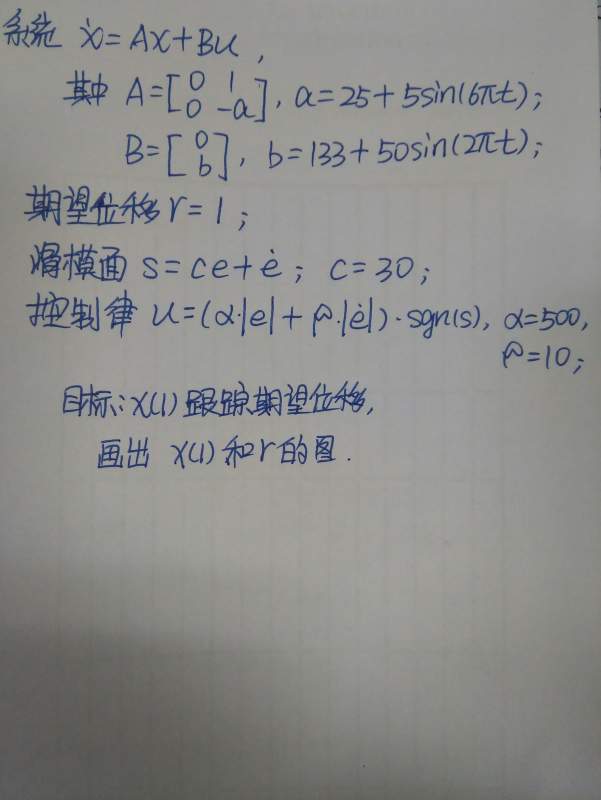 系统 ẋ=Ax+Bu,
其中 A=[0 1 0 -a], a=25+5sin(6πt);
B=[0 b], b=133+50sin(2πt);
期望位移 r=1;
滑模面 s=ce+ė; c=30;
控制律 u=(α·|e|+β·|ė|)·sgn(s), α=500,
β=10;
目标:x(1)跟踪期望位移,
画出 x(1)和r的图.